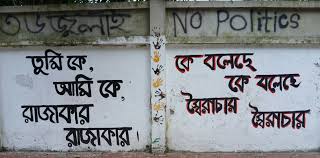 ৩৬ জুলাই
NO Politics
তুমি কে,
আমি কে,
রাজাকার
রাজাকার।
কে বলেছে
কে বলেছে
স্বৈরাচার
স্বৈরাচার